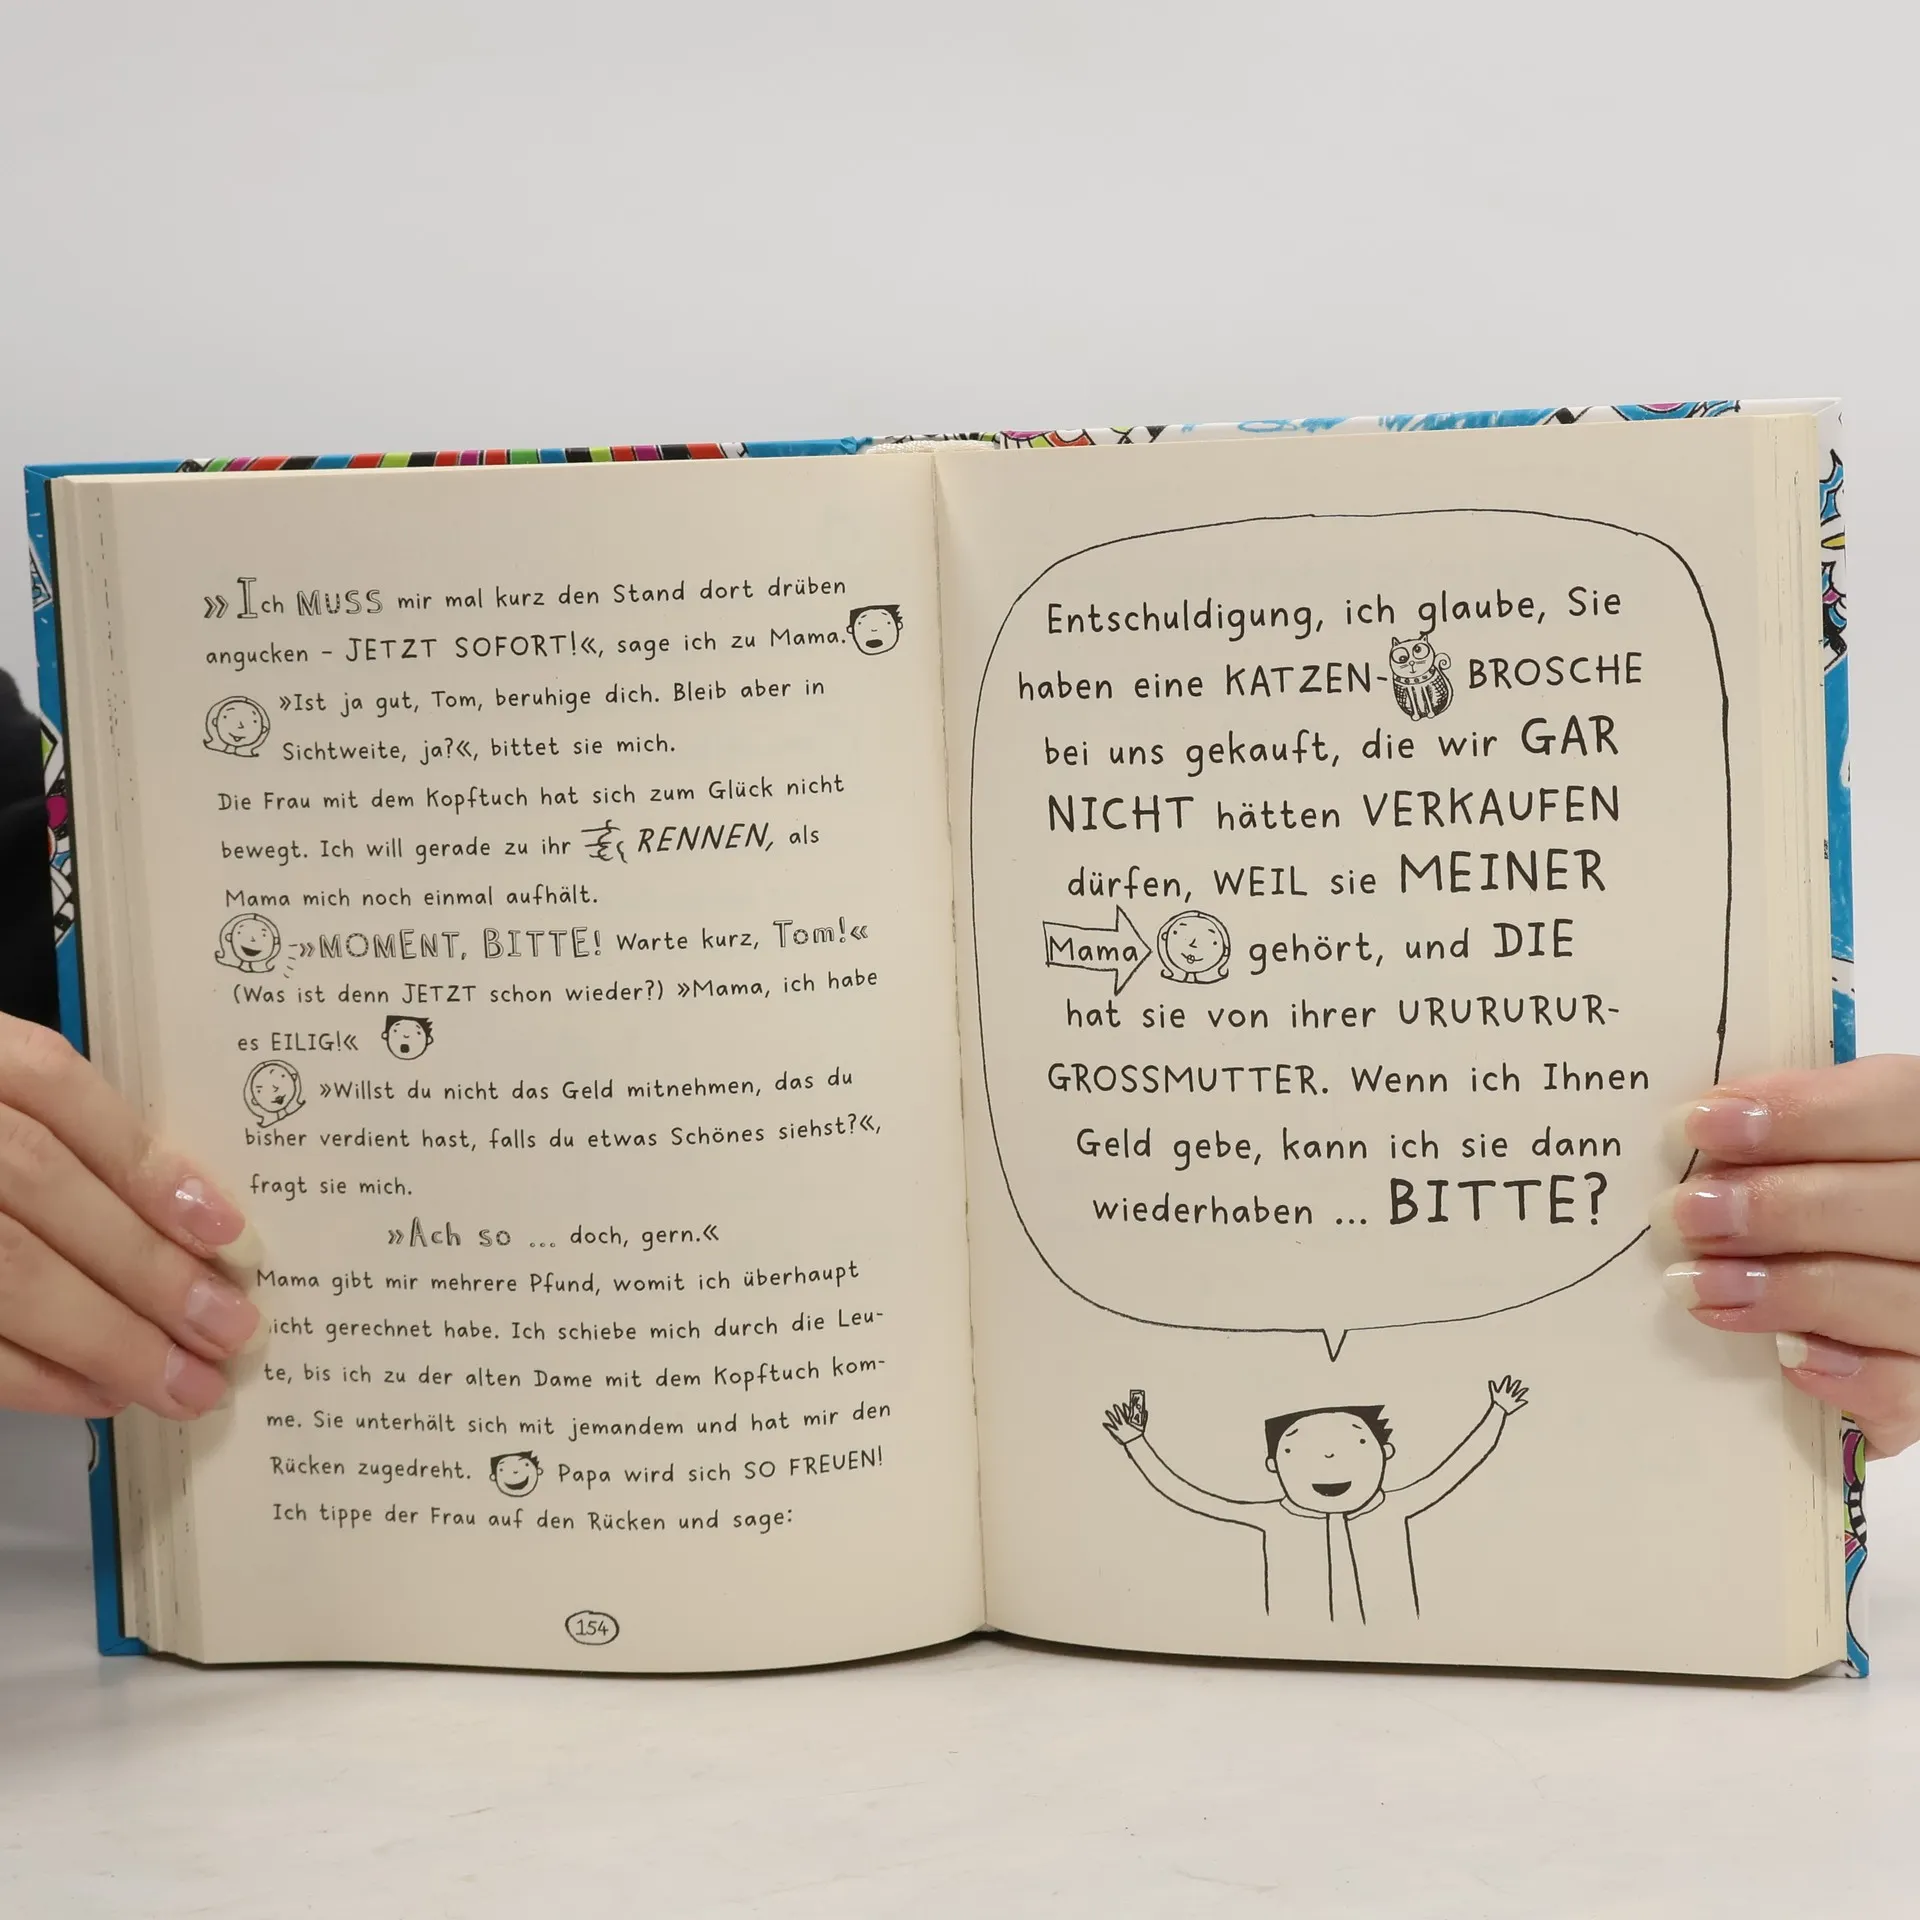 »Ich MUSS mir mal kurz den Stand dort drüben
angucken – JETZT SOFORT!«, sage ich zu Mama.
»Ist ja gut, Tom, beruhige dich. Bleib aber in
Sichtweite, ja?«, bittet sie mich.
Die Frau mit dem Kopftuch hat sich zum Glück nicht
bewegt. Ich will gerade zu ihr RENNEN, als
Mama mich noch einmal aufhält.
»MOMENT, BITTE! Warte kurz, Tom!«
(Was ist denn JETZT schon wieder?) »Mama, ich habe
es EILIG!«
»Willst du nicht das Geld mitnehmen, das du
bisher verdient hast, falls du etwas Schönes siehst?«,
fragt sie mich.
»Ach so ... doch, gern.«
Mama gibt mir mehrere Pfund, womit ich überhaupt
icht gerechnet habe. Ich schiebe mich durch die Leu-
te, bis ich zu der alten Dame mit dem Kopftuch kom-
me. Sie unterhält sich mit jemandem und hat mir den
Rücken zugedreht. Papa wird sich SO FREUEN!
Ich tippe der Frau auf den Rücken und sage:
154
Entschuldigung, ich glaube, Sie
haben eine KATZEN-BROSCHE
bei uns gekauft, die wir GAR
NICHT hätten VERKAUFEN
dürfen, WEIL sie MEINER
Mama gehört, und DIE
hat sie von ihrer URURURUR-
GROSSMUTTER. Wenn ich Ihnen
Geld gebe, kann ich sie dann
wiederhaben ... BITTE?